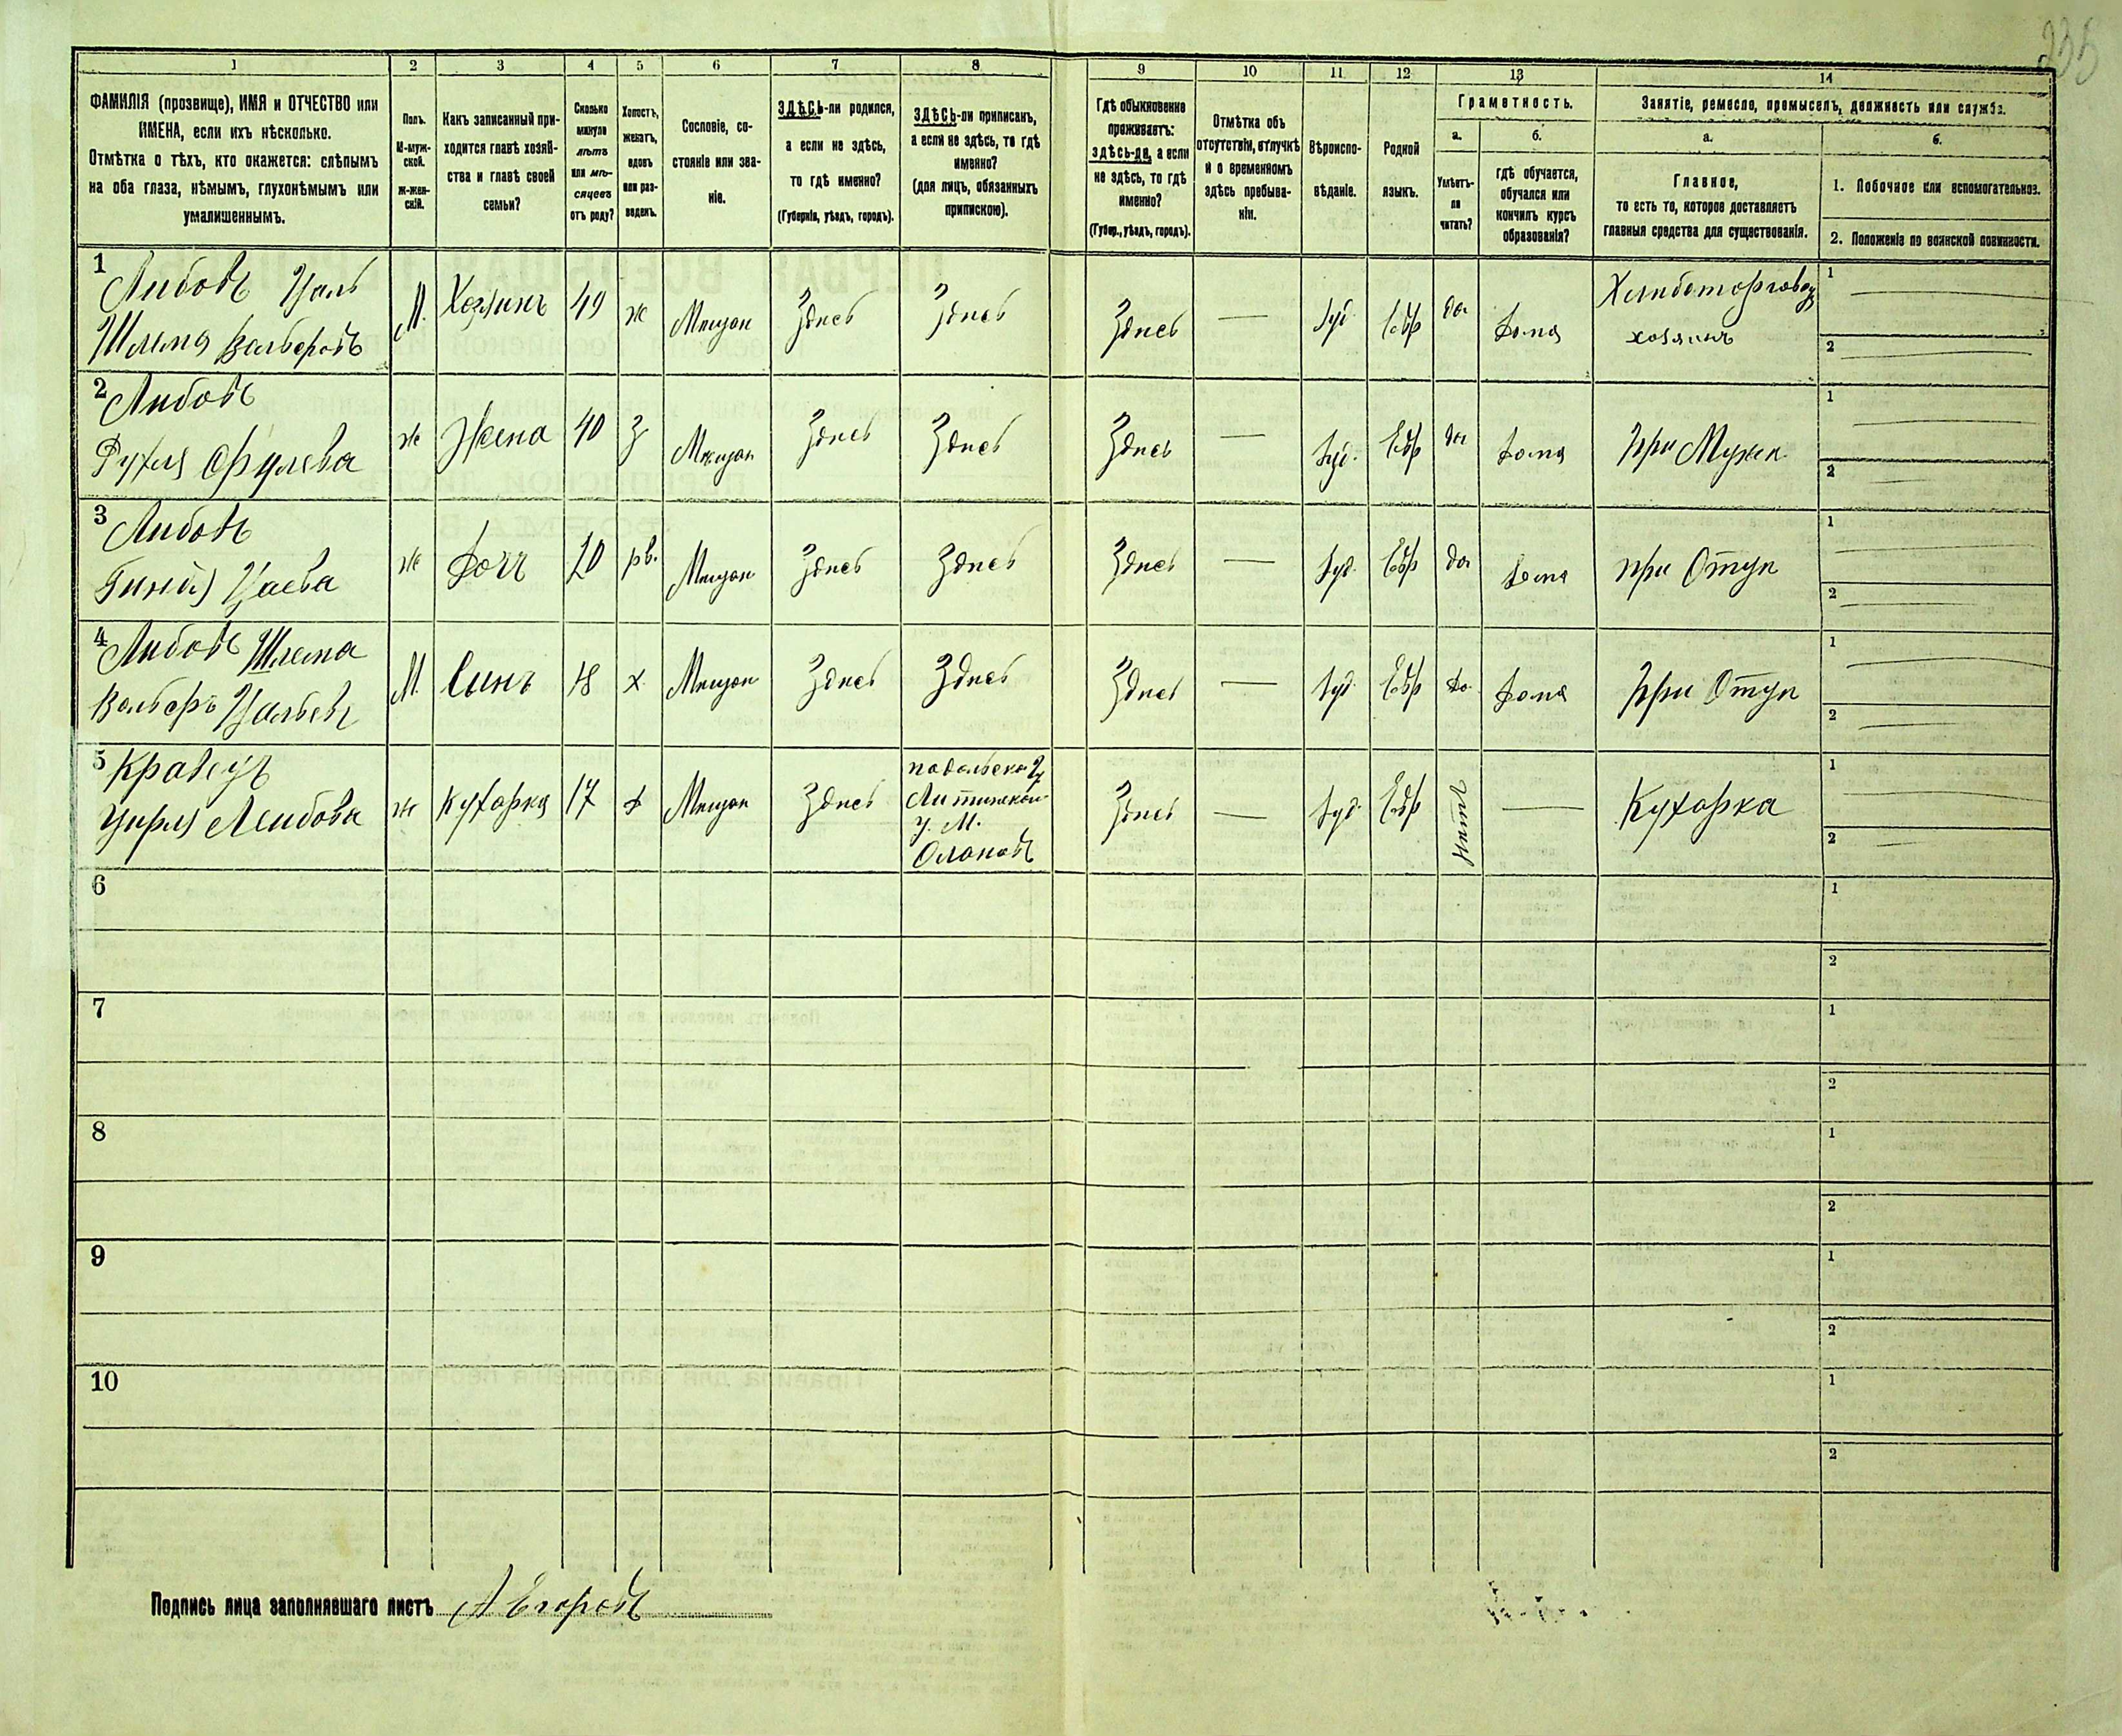 335
1 2 3 4 5 6 7 8 9 10 11 12 13 14
ФАМИЛІЯ (прозвище), ИМЯ и ОТЧЕСТВО или
ИМЕНА, если ихъ нѣсколько.
Отмѣтка о тѣхъ, кто окажется: слѣпымъ
на оба глаза, нѣмымъ, глухонѣмымъ или
умалишеннымъ.
Полъ.
М-муж-
ской.
ж-жен-
скій.
Какъ записанный при-
ходится главѣ хозяй-
ства и главѣ своей
семьи?
Сколько
минуло
лѣтъ
или мѣ-
сяцевъ
отъ роду?
Холостъ,
женатъ,
вдовъ
или раз-
веденъ.
Сословіе, со-
стояніе или зва-
ніе.
ЗДѢСЬ-ли родился,
а если не здѣсь,
то гдѣ именно?
(Губернія, уѣздъ, городъ).
ЗДѢСЬ-ли приписанъ,
а если не здѣсь, то гдѣ
именно?
(для лицъ, обязанныхъ
припискою).
Гдѣ обыкновенно
проживаетъ:
здѣсь-ли, а если
не здѣсь, то гдѣ
именно?
(Губер., уѣздъ, городъ).
Отмѣтка объ
отсутствіи, отлучкѣ
и о временномъ
здѣсь пребыва-
ніи.
Вѣроиспо-
вѣданіе.
Родной
языкъ.
Грамотность.
а.
Умѣетъ-
ли
читать?
б.
гдѣ обучается,
обучался или
кончилъ курсъ
образованія?
Занятіе, ремесло, промыселъ, должность или служба.
а.
Главное,
то есть то, которое доставляетъ
главныя средства для существованія.
б.
1. Побочное или вспомогательное.
2. Положеніе по воинской повинности.
1 Либовъ Цаль
Шлема Вольберовъ
М. Хозяинъ 49 ж Мещан Здесь Здесь Здесь — Іуд. Евр да дома
Хлиботорговец
хозяинъ
1
2
2 Либовъ
Рухля Срулева
ж Жена 40 з Мещан Здесь Здесь Здесь — Іуд. Евр да дома при Мужи
1
2
3 Либовъ
Цаева
ж дочь 20 рв. Мещан Здесь Здесь Здесь — Іуд. Евр да дома при Отци
1
2
4 Либовъ Шлема
Вольберъ Цальевъ
М. Синъ 18 х Мещан Здесь Здесь Здесь — Іуд. Евр да дома при Отци
1
2
5 Кравецъ
Цирля Лейбова
ж Кухарка 17 д Мещан Здесь
подольской г.
Литинской
у. М.
Здесь — Іуд. Евр нетъ — Кухарка
1
2
6
1
2
7
1
2
8
1
2
9
1
2
10
1
2
Подпись лица заполнявшаго листъ А Егоровъ